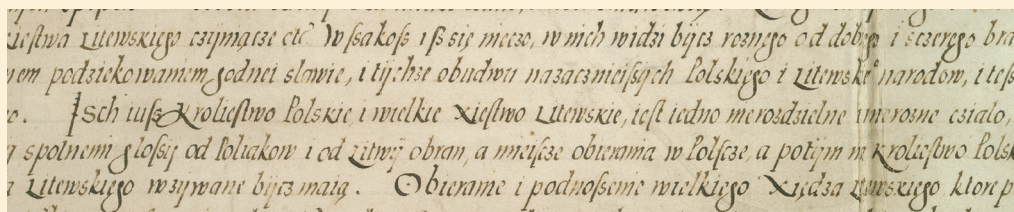 xiestwa Litewskiego czijmącze etc Wssakoss iß się nieczo, w nich widzi bijcz roznego od dobrego i sczerego bra
podziekowaniem godnei slawie, i tijchze obudwu nazaczniejssych Polskiego i Litewskiego narodow, i tess
Jsch iuss Kroliestwo Polskie i wielkie Xiestwo Litewskie, iest iedno nierozdzielne i nierozne czialo,
spolnemi glossij od Poliakow i od Litwij obran, a mieiscze obierania w Polscze, a potijm na Kroliestwo Polsk
Litewskiego wzijwane bijcz maią. Obieranie i podnossenie wielkiego Xiędza Litewskiego ktore p